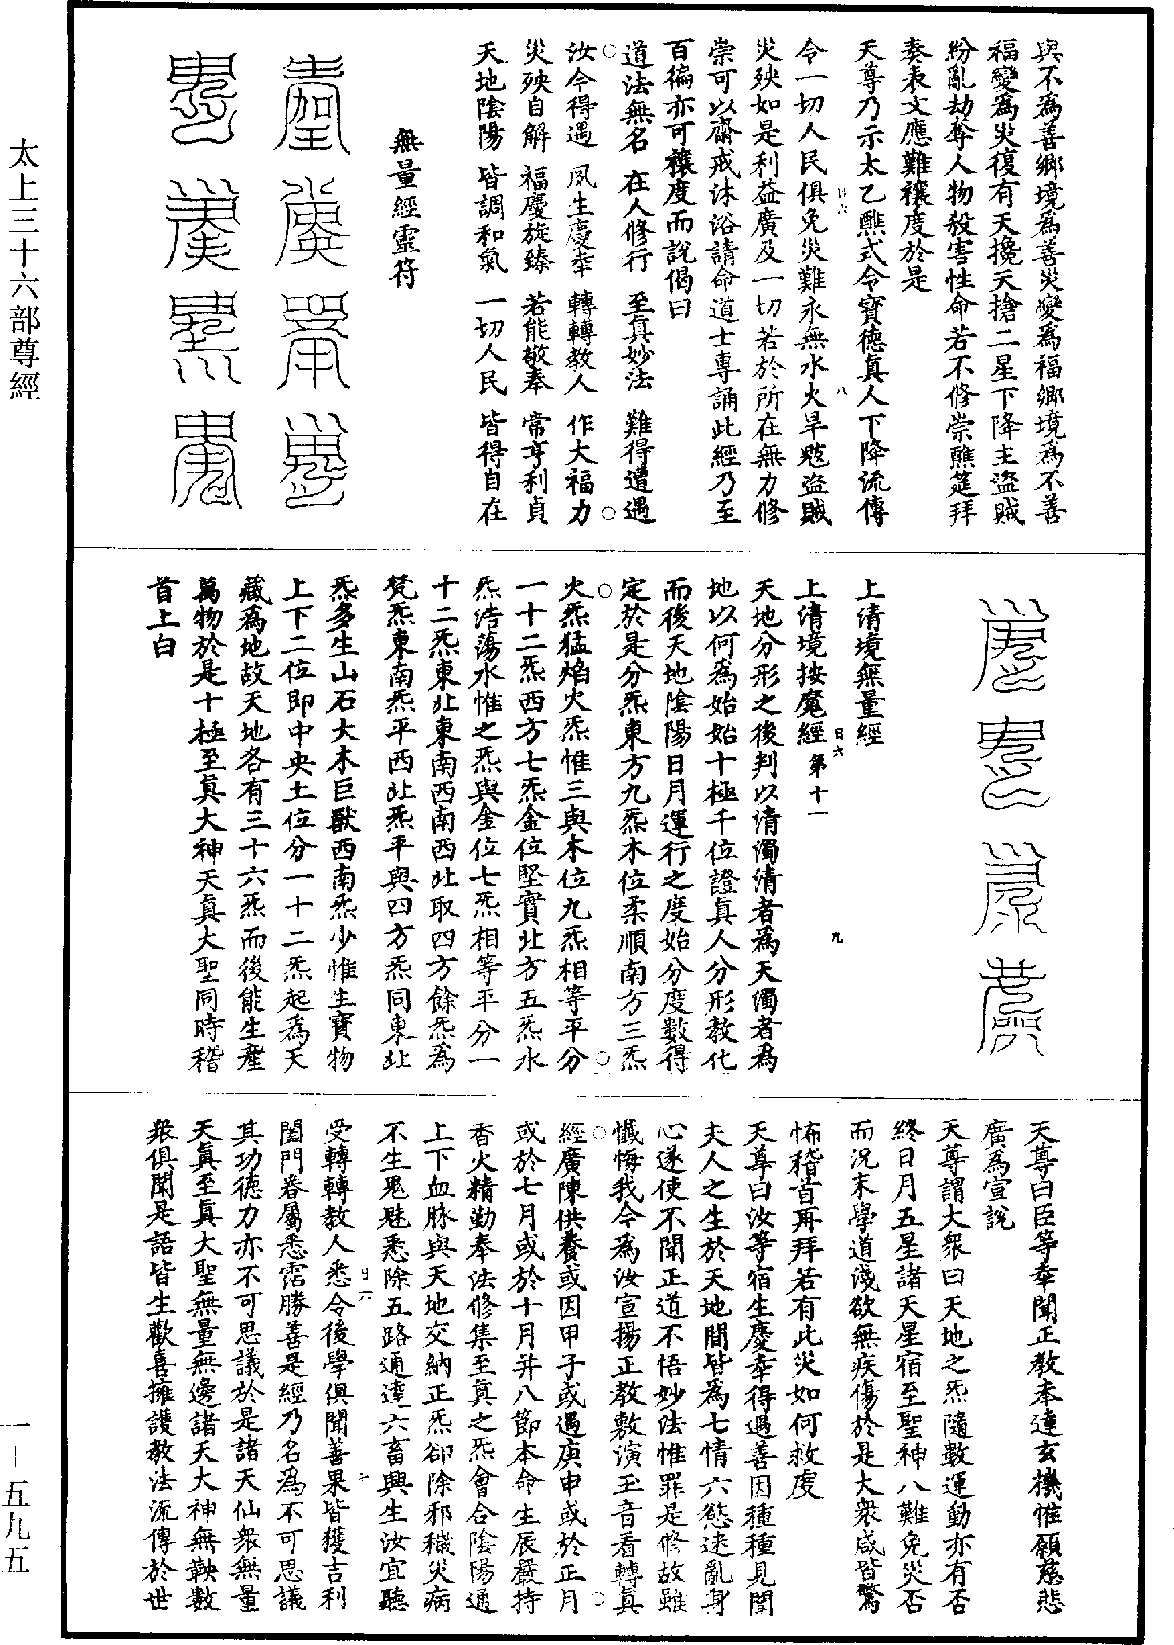 與不爲善鄉境爲善災變爲福鄉境爲不善
福變爲災復有天攙天搶二星下降主盜賊
紛亂劫奪人物殺害性命若不修崇醮筵拜
奏表文應難禳度於是
天尊乃示太乙醮式令寶德真人下降流傳
令一切人民俱免災難永無水火旱魃盜賊
災殃如是利益廣及一切若於所在無力修
崇可以齋戒沐浴請命道士專誦此經乃至
百徧亦可禳度而說偈曰
道法無名 在人修行 至真妙法 難得遭遇
汝今得遇 夙生慶幸 轉轉教人 作大福力
災殃自解 福慶旋臻 若能敬奉 常亨利貞
天地陰陽 皆調和氣 一切人民 皆得自在
無量經靈符
上清境無量經
上清境按魔經 第十一
天地分形之後判以清濁清者爲天濁者爲
地以何爲始始十極千位證真人分形教化
而後天地陰陽日月運行之度始分度數得
定於是分炁東方九炁木位柔順南方三炁
火炁猛焰火炁惟三與木位九炁相等平分
一十二炁西方七炁金位堅實北方五炁水
炁浩蕩水惟之炁與金位七炁相等平分一
十二炁東北東南西南西北取四方餘炁爲
梵炁東南炁平西北炁平與四方炁同東北
炁多生山石大木巨獸西南炁少惟生寶物
上下二位即中央土位分一十二炁起爲天
藏爲地故天地各有三十六炁而後能生產
萬物於是十極至真大神天真大聖同時稽
首上白
天尊白臣等幸聞正教未達玄機惟願慈悲
廣爲宣說
天尊謂大衆曰天地之炁隨數運動亦有否
終日月五星諸天星宿至聖神八難免災否
而況末學道淺欲無疾傷於是大衆咸皆驚
怖稽首再拜若有此災如何救度
天尊曰汝等宿生慶幸得遇善因種種見聞
夫人之生於天地間皆爲七情六慾迷亂身
心遂使不聞正道不悟妙法惟罪是修故雖
懺悔我今爲汝宣揚正教敷演玉音看轉真
經廣陳供養或因甲子或遇庚申或於正月
或於七月或於十月并八節本命生辰嚴持
香火精勤奉法修集至真之炁會合陰陽通
上下血脉與天地交納正炁卻除邪穢災病
不生鬼魅悉除五路通達六畜興生汝宜聽
受轉轉教人悉令後學俱聞善果皆獲吉利
闔門眷屬悉霑勝善是經乃名爲不可思議
其功德力亦不可思議於是諸天仙衆無量
天真至真大聖無量無邊諸天大神無鞅數
衆俱聞是語皆生歡喜擁護教法流傳於世
太上三十六部尊經
一－五九五